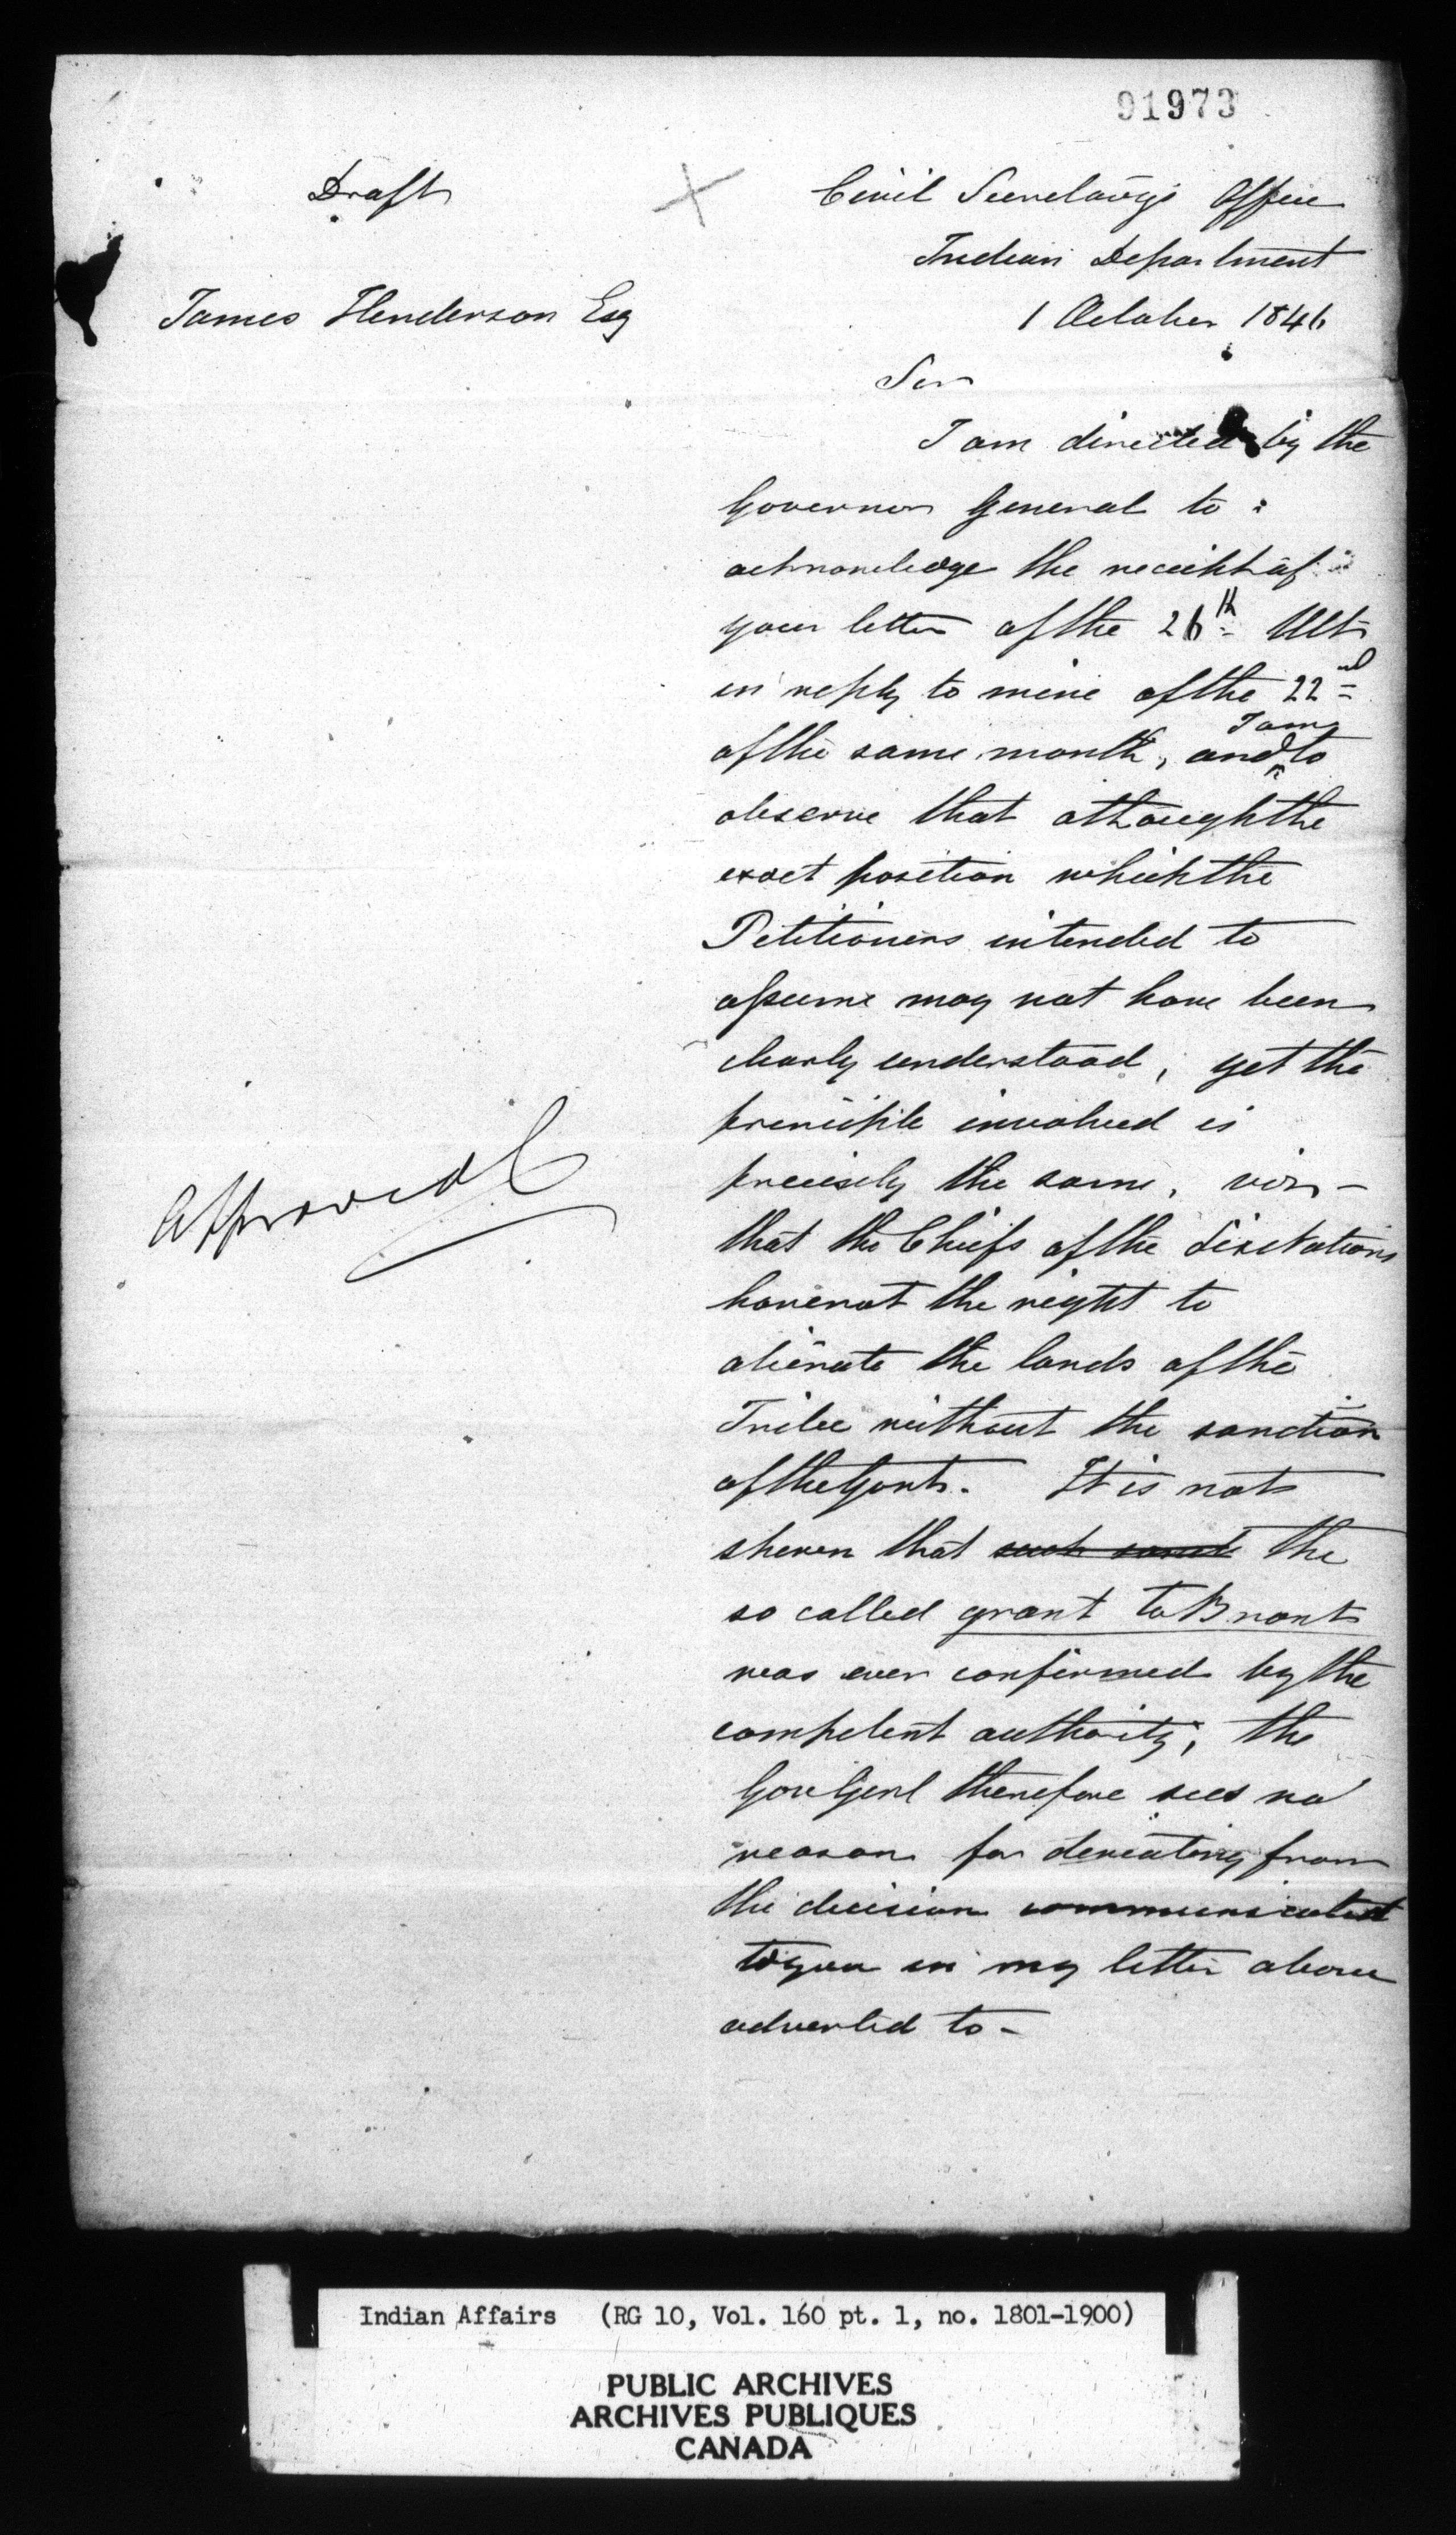 91973
Draft
Civil Secretary's Office
Indian Department
James Henderson Esq
1 October 1846
Sir
I am directed by the
Governor General to
acknowledge the receipt of
your letter of the 26th Ult
in reply to mine of the 22nd
I am
of the same month, and to
observe that although the
exact position which the
Petitioners intended to
assume may not have been
clearly understood, yet the
principle involved is
precisely the same, viz -
that the Chiefs of the Six Nations
have not the right to
alienate the lands of the
Tribe without the sanction
of the Govt. It is not
shewn that such the
so called grant to Brant
was ever confirmed by the
competent authority, the
Gov Genl therefore sees no
reason for deviating from
the decision communicated
to you in my letter above
adverted to -
Approved
Indian Affairs (RG 10, Vol. 160 pt. 1, no. 1801-1900)
PUBLIC ARCHIVES
ARCHIVES PUBLIQUES
CANADA